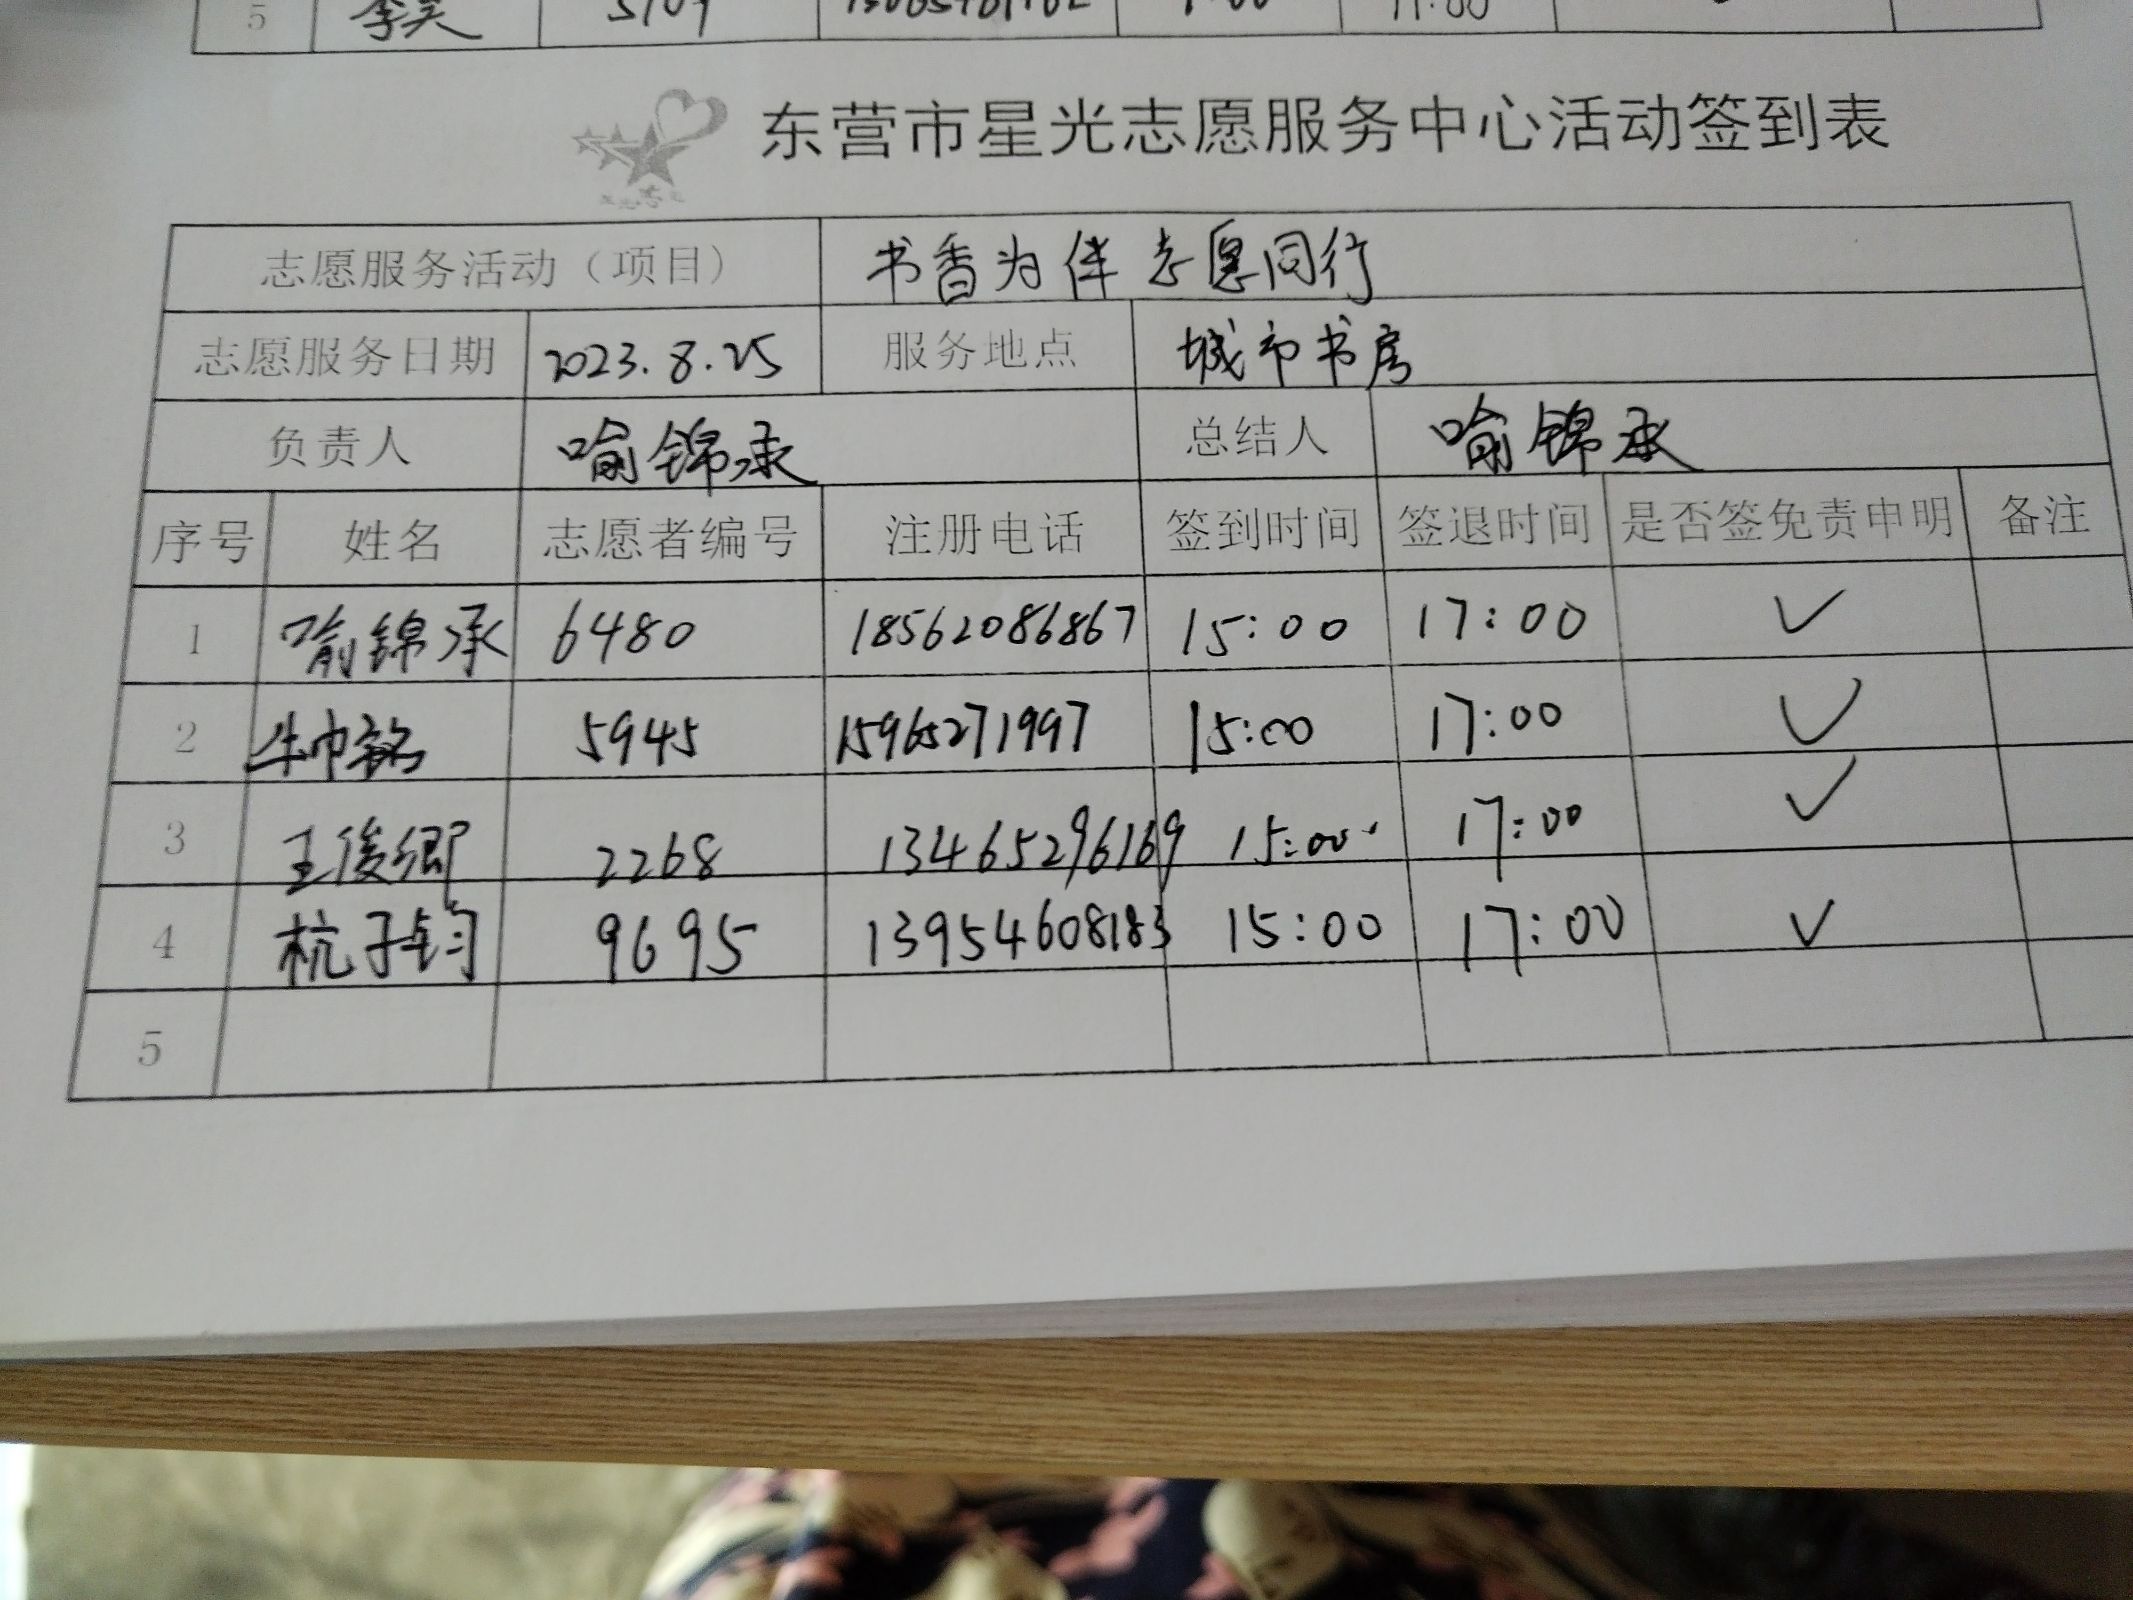 5 李昊 5109 11:00
东营市星光志愿服务中心活动签到表
志愿服务活动（项目） 书香为伴 志愿同行
志愿服务日期 2023.8.25 服务地点 城市书房
负责人 喻锦承 总结人 喻锦承
序号 姓名 志愿者编号 注册电话 签到时间 签退时间 是否签免责申明 备注
1 喻锦承 6480 18562086867 15:00 17:00 ✓
2 5945 15965271997 15:00 17:00 ✓
3 王俊卿 2268 13465296169 15:00 17:00 ✓
4 杭子钧 9695 13954608183 15:00 17:00 ✓
5